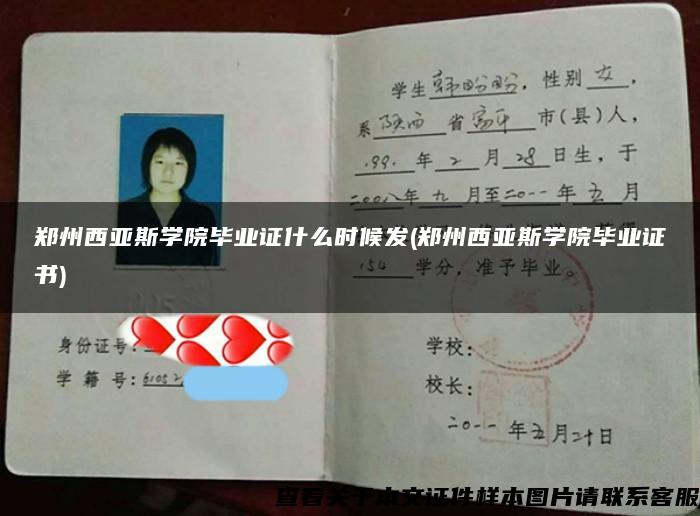 学生韩盼盼，性别女，
系陕西省富平市(县)人，
199.年2月28日生，于
二00八年九月至二0一一年五月
郑州西亚斯学院毕业证什么时候发(郑州西亚斯学院毕业证
书)
154学分，准予毕业。
身份证号：
学籍号：6105
学校：
校长：
二0一一年五月二十日
查看关于本文证件样本图片请联系客服